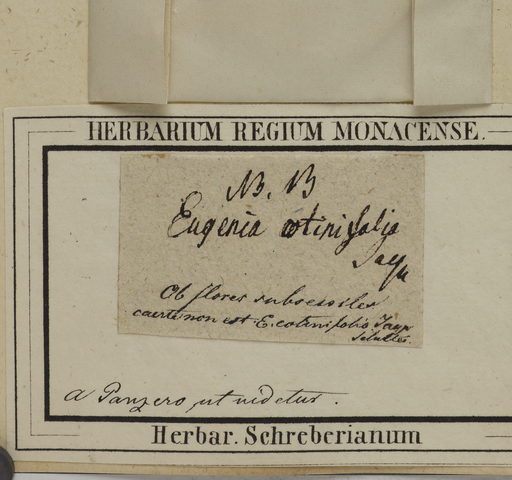 HERBARIUM REGIUM MONACENSE.
NB. B
Eugenia cotinifolia
Jacqu
Ob flores subsessiles
certe non est E. cotinifolia Jaqu
a Panzero, ut videtur.
Herbar. Schreberianum